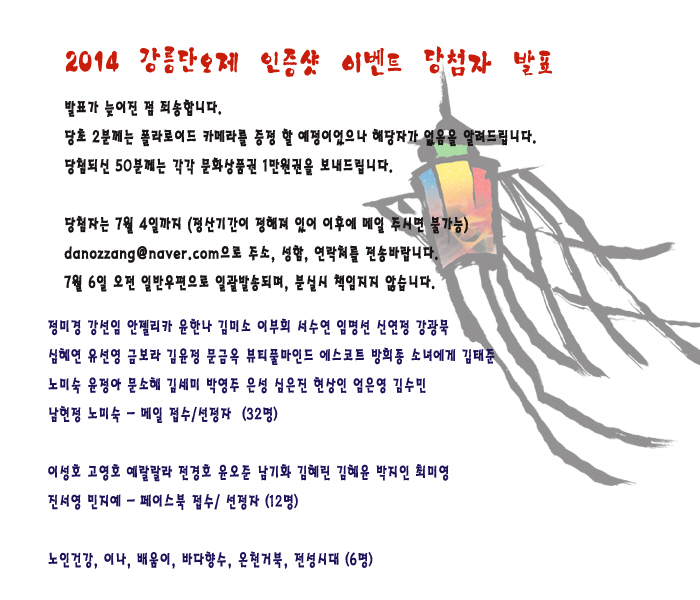 2014 강릉단오제 인증샷 이벤트 당첨자 발표
발표가 늦어진 점 죄송합니다.
당초 2분께는 폴라로이드 카메라를 증정 할 예정이었으나 해당자가 없음을 알려드립니다.
당첨되신 50분께는 각각 문화상품권 1만원권을 보내드립니다.
당첨자는 7월 4일까지 (정산기간이 정해져 있어 이후에 메일 주시면 불가능)
danozzang@naver.com으로 주소, 성함, 연락처를 전송바랍니다.
7월 6일 오전 일반우편으로 일괄발송되며, 분실시 책임지지 않습니다.
정미경 강선임 안젤리카 윤한나 김미소 이부희 서수연 임명선 신연정 강광묵
심혜연 유선영 금보라 김윤정 문금옥 뷰티풀마인드 에스코트 방희동 소녀에게 김태준
노미숙 윤정아 문소혜 김세미 박영주 은성 심은진 현상인 엄은영 김수민
남현정 노미숙 - 메일 접수/선정자 (32명)
이성호 고영호 예랄랄라 전경호 윤오준 남기화 김혜린 김혜윤 박지인 최미영
진서영 민지예 - 페이스북 접수/ 선정자 (12명)
노인건강, 이나, 배움이, 바다향수, 온천거북, 전성시대 (6명)